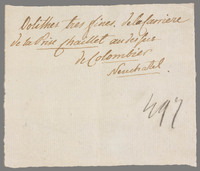 Oolithes très fines, de la carriere
de la Prise Chaillet au dessus
de Colombier
Neuchatel.
497